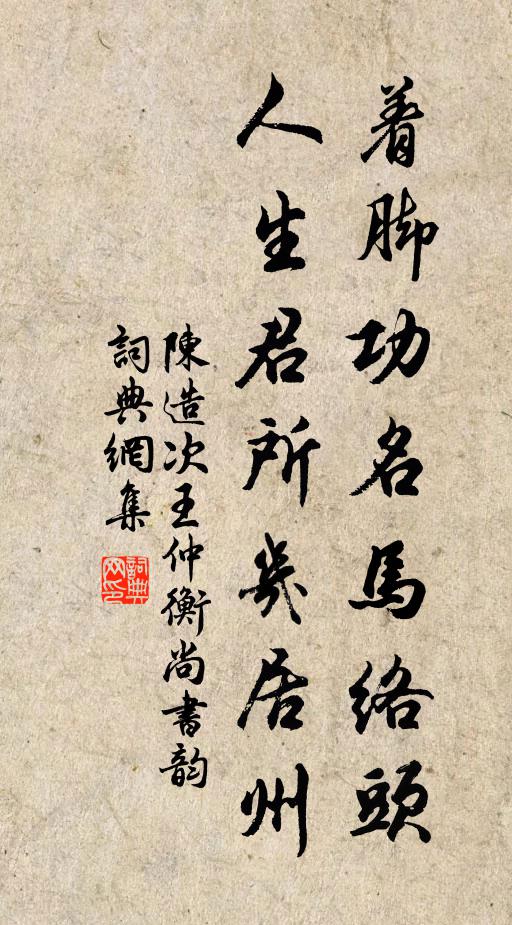 着脚功名馬絡頭
人生君所幾居州
陳造次王仲衡尚書韵
詞典網集
詞典网印